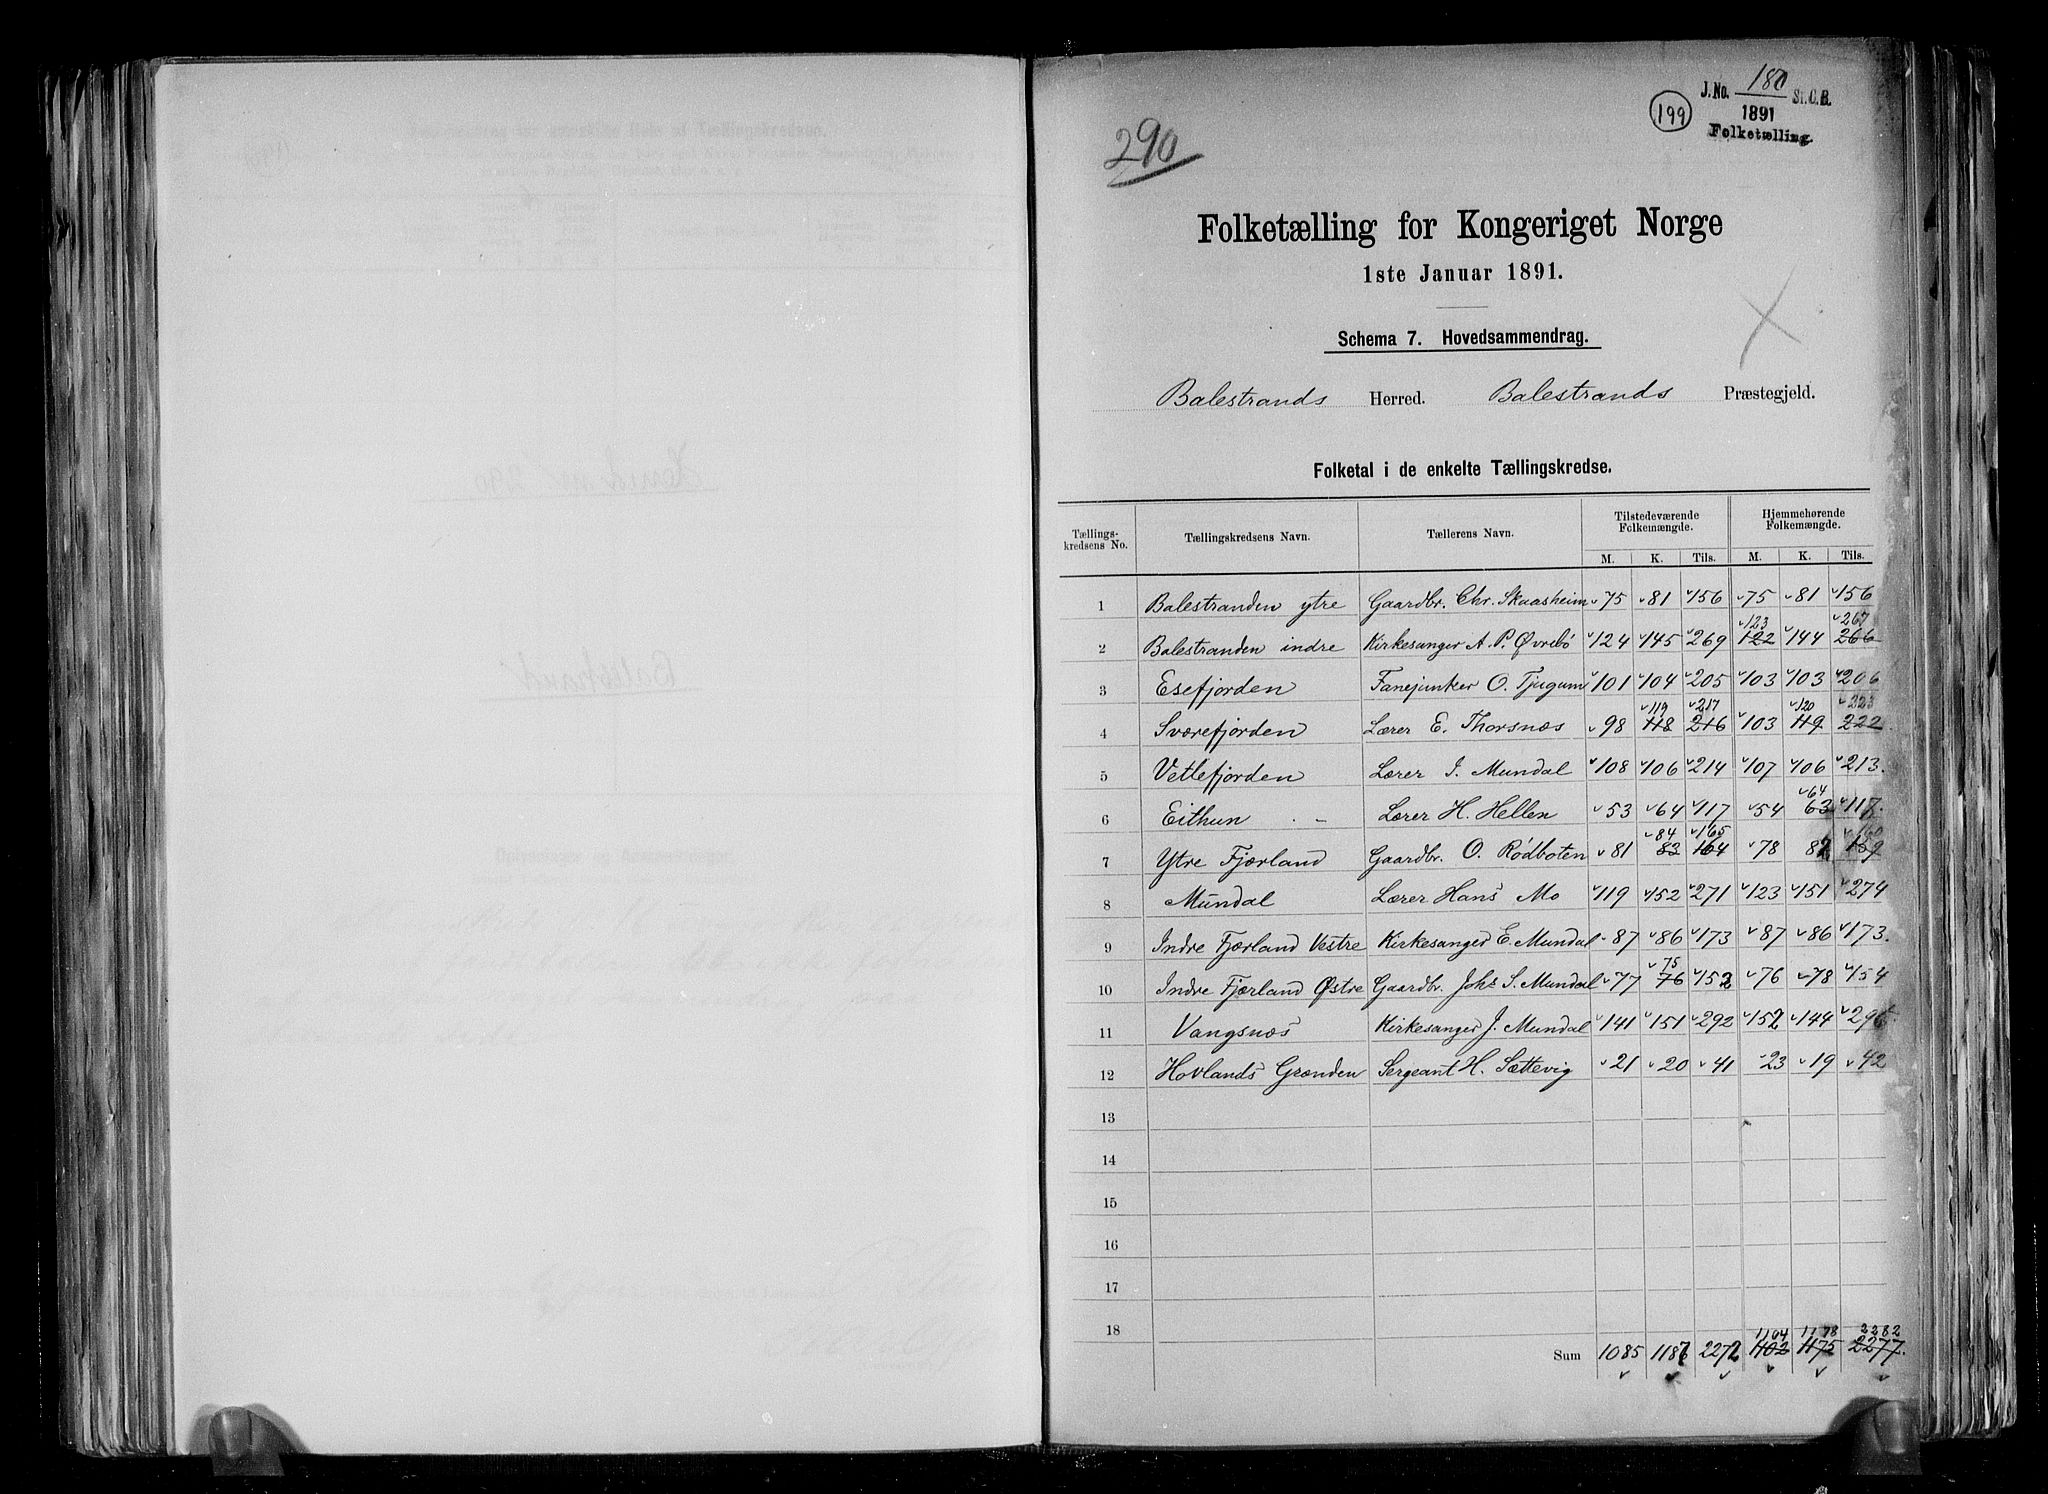 290
199
J. No. 180 St. C. B.
1891
Folketælling.
Folketælling for Kongeriget Norge
1ste Januar 1891.
Schema 7. Hovedsammendrag.
Balestrands Herred. Balestrands Præstegjeld.
Folketal i de enkelte Tællingskredse.
Tællings-kredsens No. Tællingskredsens Navn. Tællerens Navn. Tilstedeværende Folkemængde. Hjemmehørende Folkemængde.
M. K. Tils. M. K. Tils.
1 Balestranden ytre Gaardbr. Chr. Skaasheim 75 81 156 75 81 156
123 267
2 Balestranden indre Kirkesanger A. P. Øvrebö 124 145 269 122 144 266
3 Esefjorden Fanejunker O. Tjugum 101 104 205 103 103 206
119 217 120 223
4 Sværefjorden Lærer E. Thorsnæs 98 118 216 103 119 222
5 Vetlefjorden Lærer I. Mundal 108 106 214 107 106 213.
64
6 Eithun . - Lærer H. Hellen 53 64 117 54 63 117.
84 165 160
7 Ytre Fjærland Gaardbr. O. Rödboten 81 83 164 78 82 159
8 Mundal Lærer Hans Mo 119 152 271 123 151 274
9 Indre Fjærland Vestre Kirkesanger E. Mundal 87 86 173 87 86 173.
75
10 Indre Fjærland Østre Gaardbr. Johs S. Mundal 77 76 152 76 78 154
11 Vangsnæs Kirkesanger J. Mundal 141 151 292 152 144 296
12 Hovlands Grænden Sergeant H. Sættevig 21 20 41 23 19 42
13
14
15
16
17
18
1104 1178 2282
Sum 1085 1187 2272 1102 1175 2277.